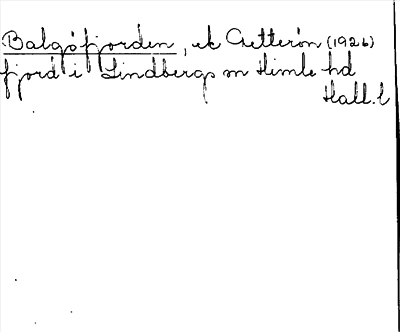 Balgöfjorden, ek Getterön (1926)
fjord i Lindbergs sn Himle hd
Hall.l